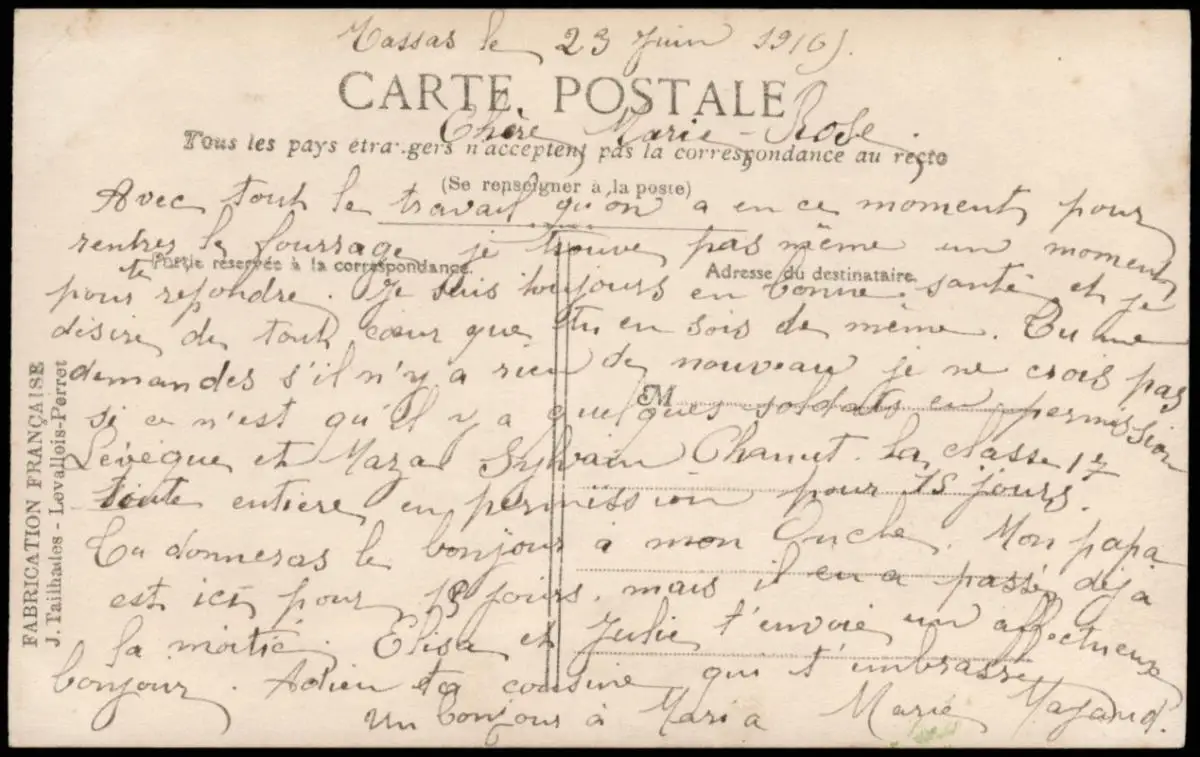 Massas le 23 Juin 1916.
CARTE POSTALE
Chère Marie-Rose.
Tous les pays étrangers n'acceptent pas la correspondance au recto
(Se renseigner à la poste)
Avec tout le travail qu'on a en ce moment pour
rentrer le fourrage je trouve pas même un moment
Partie réservée à la correspondance.
Adresse du destinataire.
pour te repondre. Je suis toujours en bonne santé et je
désire de tout cœur que tu en sois de même. Tu me
demandes s'il n'y a rien de nouveau je ne crois pas
M
si ce n'est qu'il y a quelques soldats en permission
Lévêque et Maza Sylvain Chanut. La classe 17
toute entière en permission pour 15 jours.
Tu donneras le bonjour à mon Oncle. Mon papa
est ici pour jours. mais il en a passé déja
la moitié. Elisa et Julie t'envoie un affectueux
bonjour. Adieu ta cousine qui t'embrasse
Un bonjour à Maria Marie
FABRICATION FRANÇAISE
J. Tailhades - Levallois-Perret